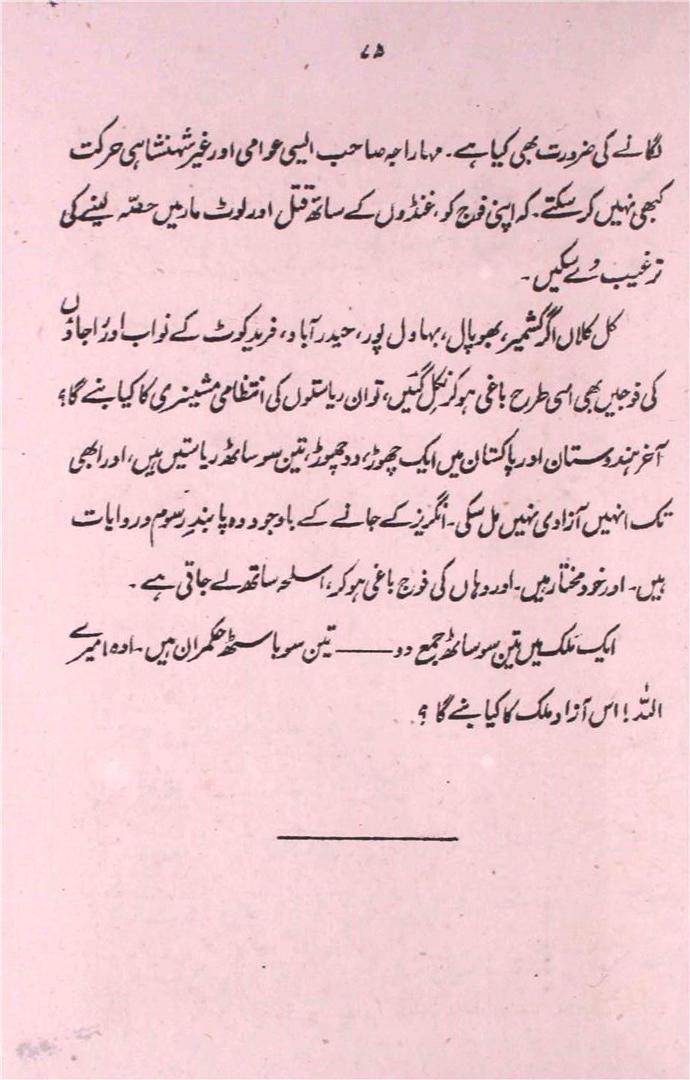 ۷۵
لگانے کی ضرورت بھی کیا ہے۔ مہاراجہ صاحب ایسی عوامی اور غیر شہنشاہی حرکت
کبھی نہیں کر سکتے۔ کہ اپنی فوج کو، غنڈوں کے ساتھ قتل اور لوٹ مار میں حصّہ لینے کی
ترغیب دے سکیں۔
کل کلاں اگر کشمیر، بھوپال، بہاول پور، حیدرآباد، فرید کوٹ کے نواب اور راجاؤں
کی فوجیں بھی اسی طرح باغی ہو کر نکل گئیں، تو ان ریاستوں کی انتظامی مشینری کا کیا بنے گا؟
آخر ہندوستان اور پاکستان میں ایک چھوڑ، دو چھوڑ، تین سو ساٹھ ریاستیں ہیں، اور ابھی
تک انہیں آزادی نہیں مل سکی۔ انگریز کے جانے کے باوجود وہ پابندِ رسوم و روایات
ہیں۔ اور خود مختار ہیں۔ اور وہاں کی فوج باغی ہو کر، اسلحہ ساتھ لے جاتی ہے۔
ایک ملک میں تین سو ساٹھ جمع دو —— تین سو باسٹھ حکمران ہیں۔ اوہ! میرے
اللہ! اس آزاد ملک کا کیا بنے گا؟